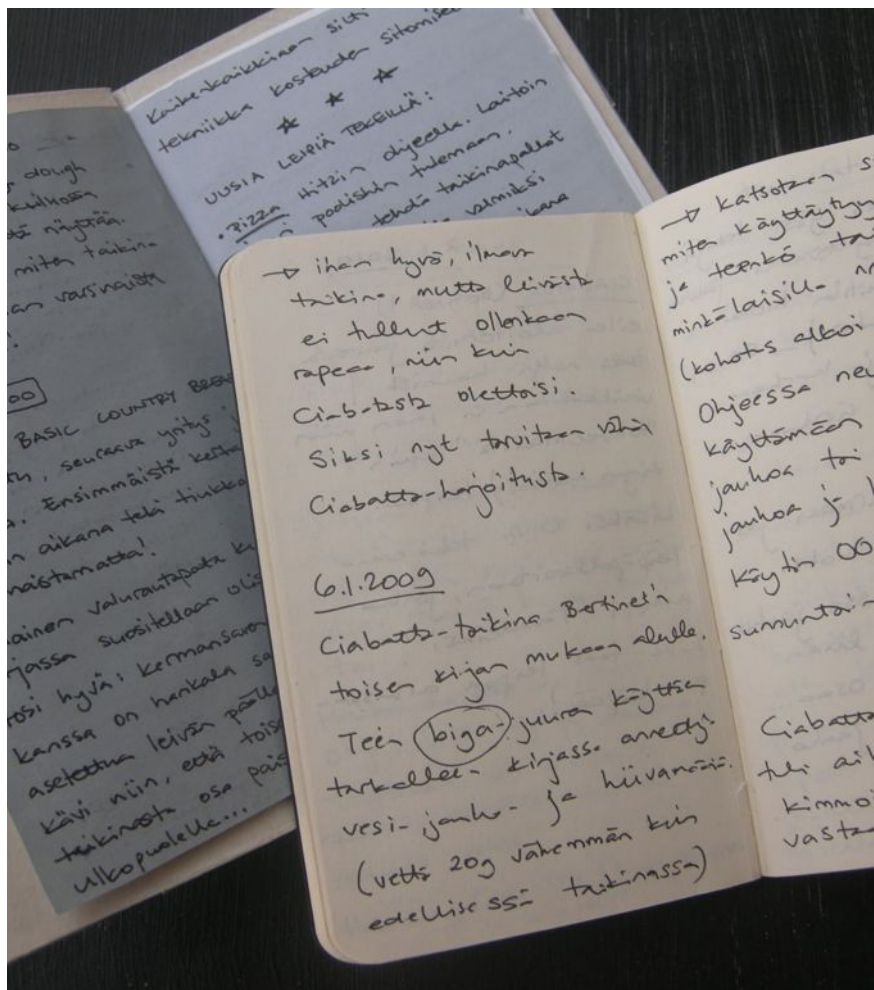 dough
kulhossa
näyttää.
miten taikina
varsinaista
BASIC COUNTRY BREAD
seuraava yritys
Ensimmäistä kertaa
aikana tekä tiukka
valurautapata
suositellaan olis
hyvä: kermansaven
kanssa on hankala
asetettua leivän päälle
kävi niin, että toise
taikinasta osa pais
ulkopuolella...
Kaikenkaikkiaan silti
tekniikka kosteuden sitomise
★ ★ ★
UUSIA LEIPIÄ TEKEILLÄ:
• PIZZA Hitzin ohjeella. Laitoin
poolishin tulemaan.
tehdä taikinapallot
valmiksi
aikana
→ ihan hyvä, ilmava
taikina, mutta leivästä
ei tullut ollenkaan
rapeaa, niin kuin
Ciabatasta olettaisi.
Siksi nyt tarvitaan vähän
Ciabatta-harjoitusta.
6.1.2009
Ciabatta-taikina Bertinet'n
toisen kirjan mukaan alulle.
Teen biga-juuren käyttäen
tarkalleen kirjassa annettuja
vesi- jauho- ja hiivamääriä.
(vettä 20g vähemmän kuin
edellisessä taikinassa)
→ katsotaan
miten käyttäytyy
ja teenkö
minkälaisilla
(kohotus alkoi
Ohjeessa
käyttämään
jauhoa tai
jauhoa ja
Käytin 00
Ciabatta
tuli
kimmoi